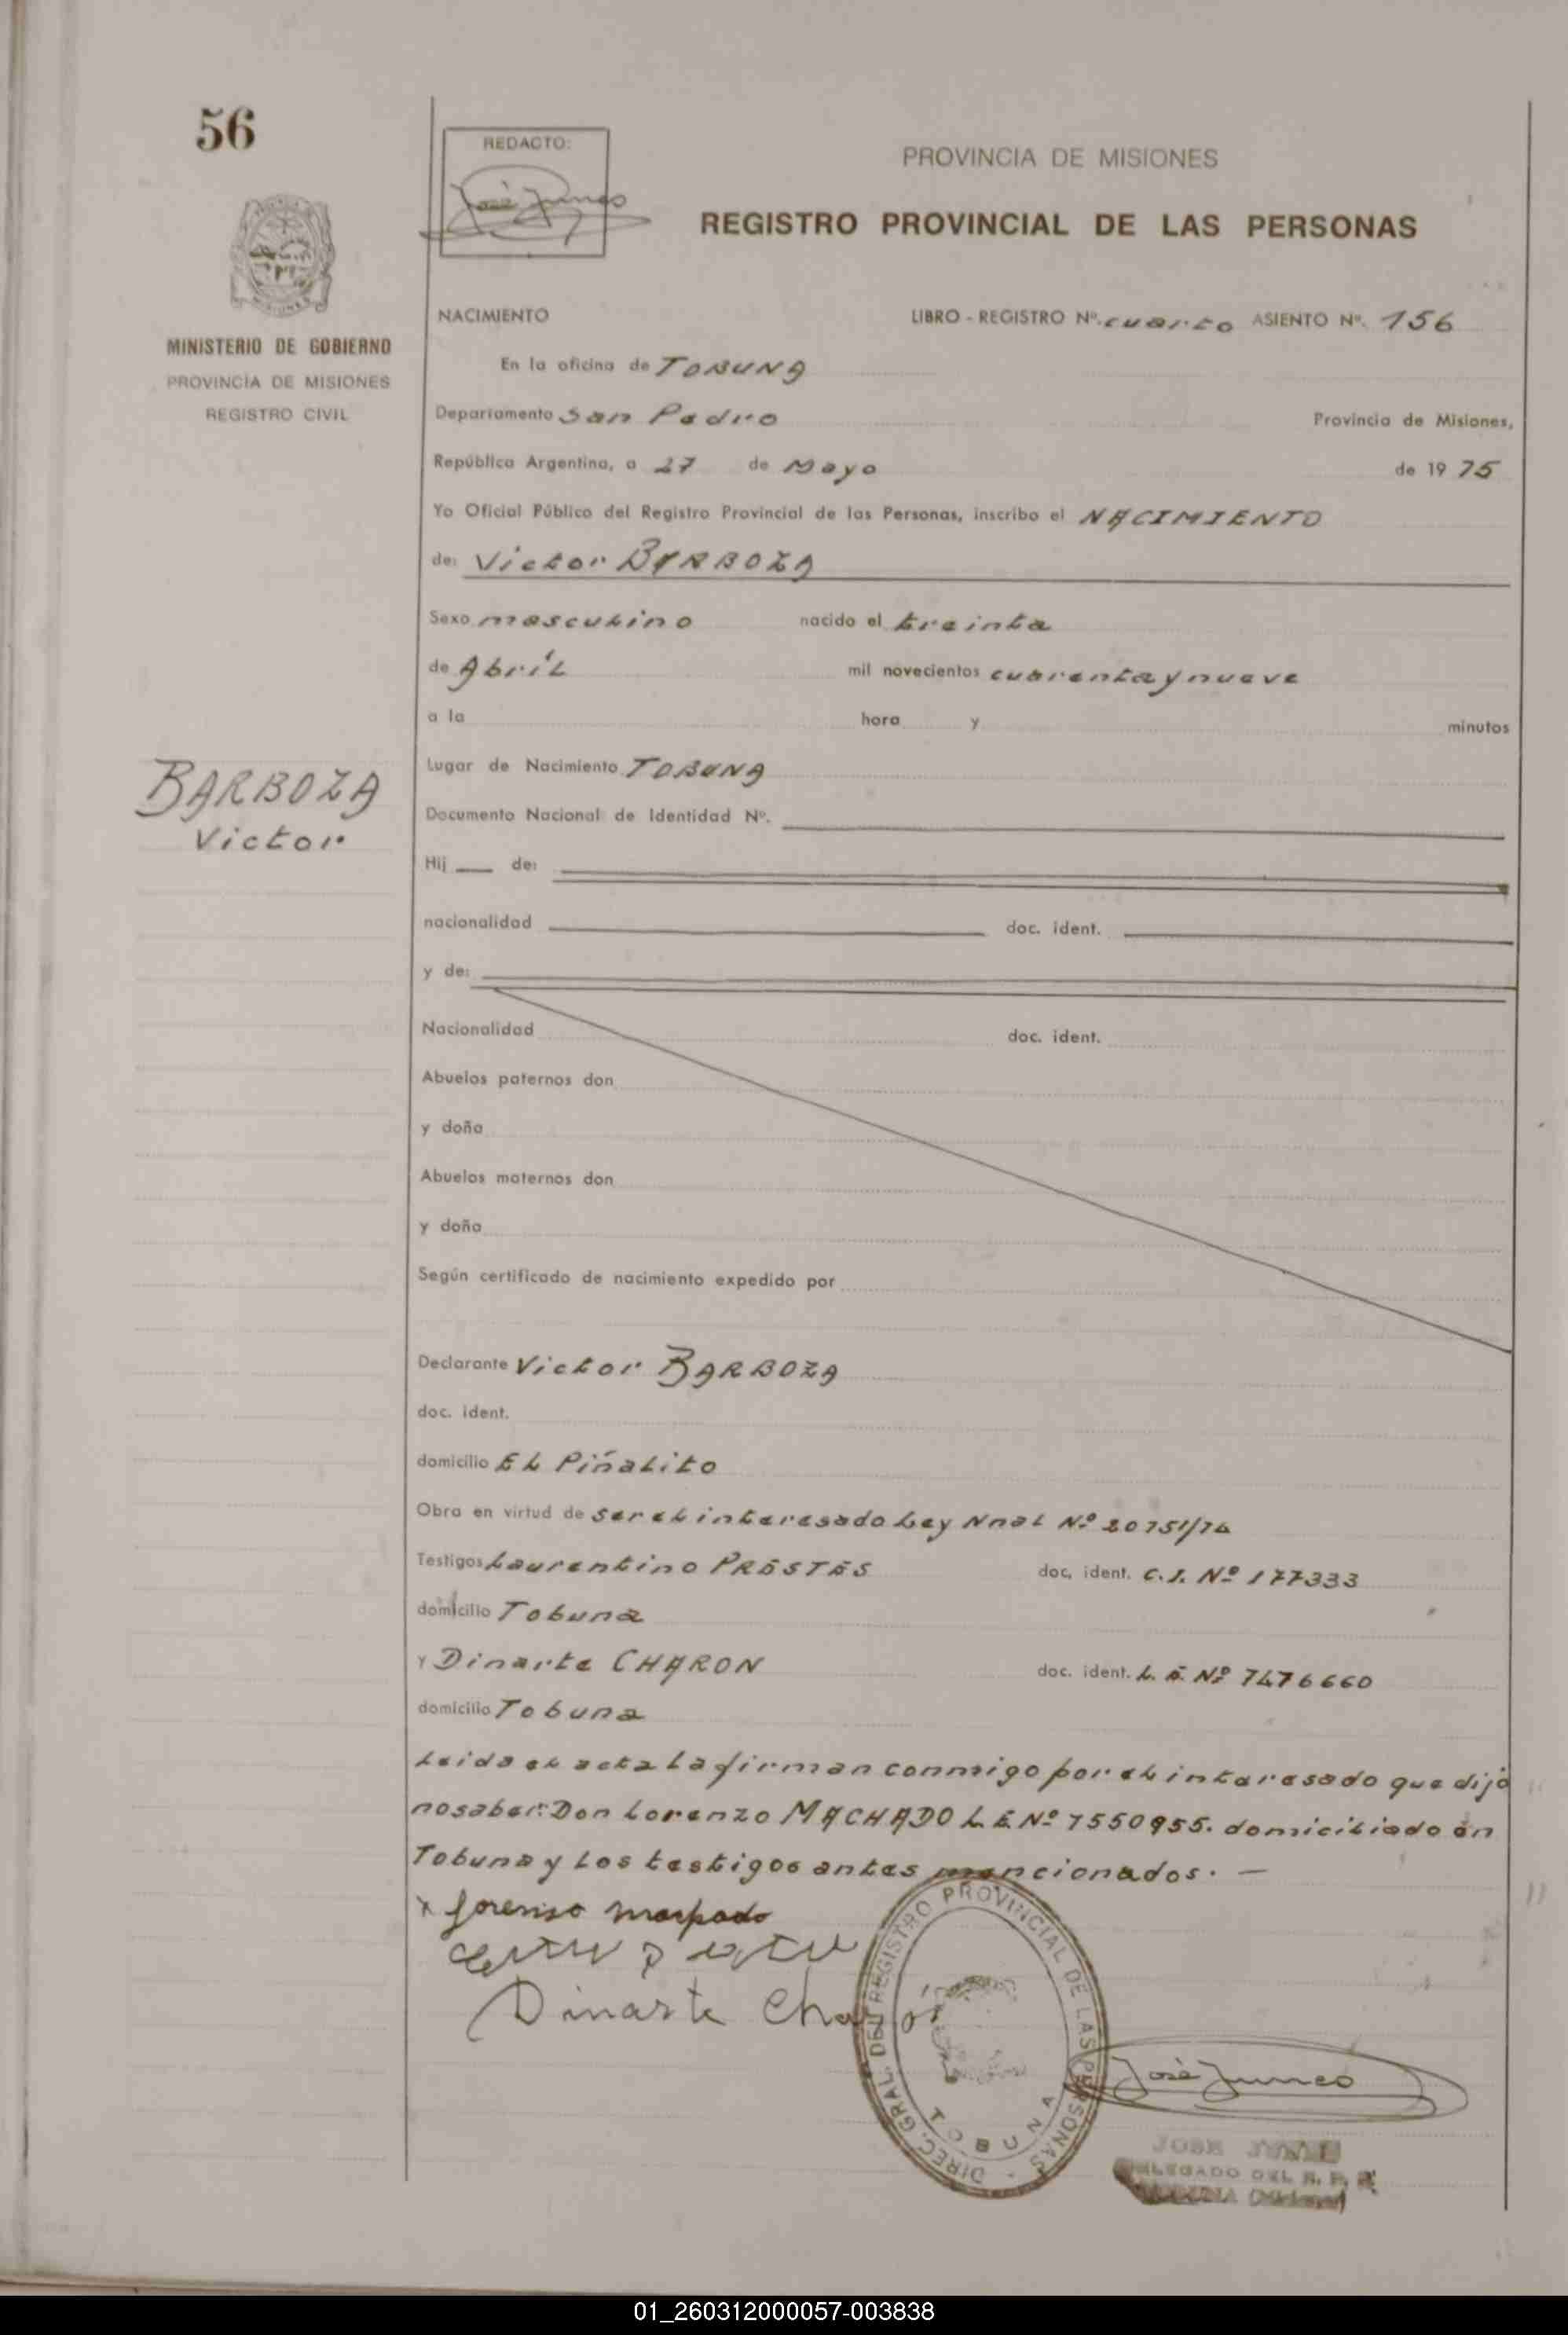 56
REDACTO:
José Junco
PROVINCIA DE MISIONES
REGISTRO PROVINCIAL DE LAS PERSONAS
MINISTERIO DE GOBIERNO
PROVINCIA DE MISIONES
REGISTRO CIVIL
NACIMIENTO LIBRO - REGISTRO Nº. cuarto ASIENTO Nº. 156
En la oficina de TOBUNA
Departamento San Pedro Provincia de Misiones,
República Argentina, a 27 de Mayo de 19 75
Yo Oficial Público del Registro Provincial de las Personas, inscribo el NACIMIENTO
de: Victor BARBOZA
Sexo masculino nacido el treinta
de Abríl mil novecientos cuarenta y nueve
a la hora y minutos
BARBOZA
Victor
Lugar de Nacimiento TOBUNA
Documento Nacional de Identidad Nº.
Hij de:
nacionalidad doc. ident.
y de:
Nacionalidad doc. ident.
Abuelos paternos don
y doña
Abuelos maternos don
y doña
Según certificado de nacimiento expedido por
Declarante Victor BARBOZA
doc. ident.
domicilio EL Piñalito
Obra en virtud de ser el interesado Ley Nnal Nº 20751/74
Testigos Laurentino PRESTES doc, ident. C.I. Nº 177333
domicilio Tobuna
y Dinarte CHARON doc. ident. L. E. Nº 7476660
domicilio Tobuna
Leida el acta la firman conmigo por el interesado que dijo
no saber: Don Lorenzo MACHADO L.E. Nº 7550955. domiciliado en
Tobuna y los testigos antes mencionados. —
x Lorenso
Dinarte
DIREC. GRAL. DEL REGISTRO PROVINCIAL DE LAS PERSONAS -
TOBUNA
José Junco
JOSE
DELEGADO DEL R. P. P.
TOBUNA (Misiones)
01_260312000057-003838